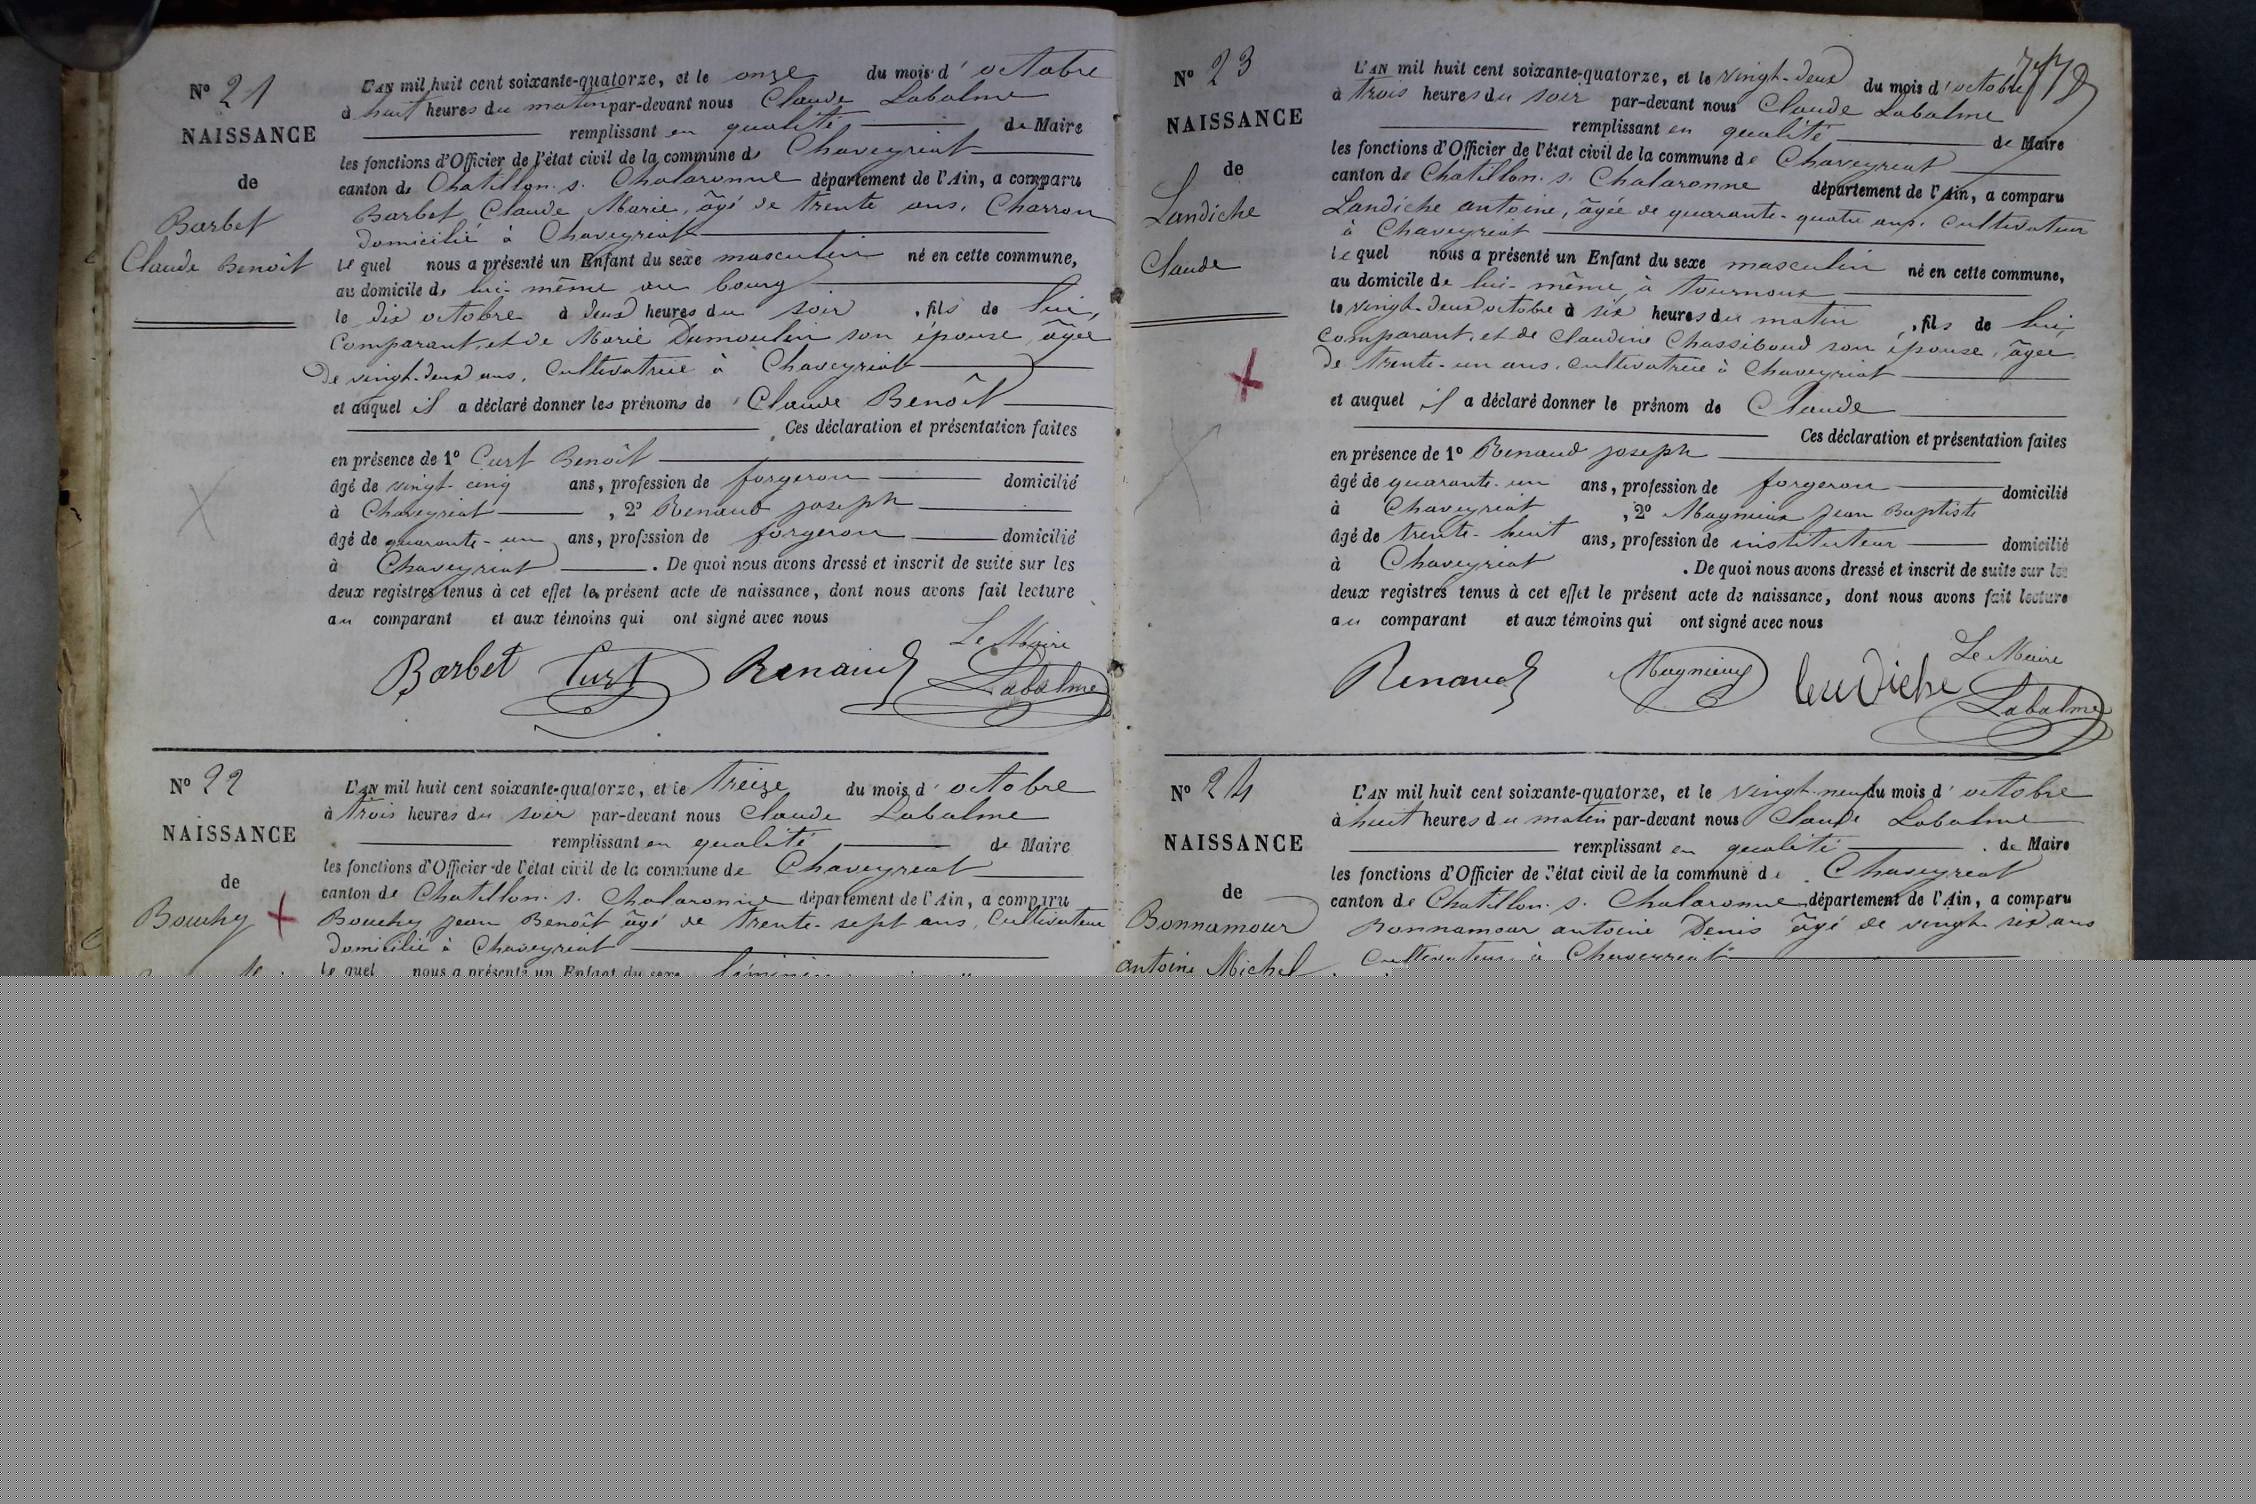 N° 21
NAISSANCE
de
Barbet
Claude Benoît
L'AN mil huit cent soixante-quatorze, et le onze du mois d'octobre
à huit heures du matin par-devant nous Claude Labalme
remplissant en qualité de Maire
les fonctions d'Officier de l'état civil de la commune de Chaveyriat
canton de Chatillon s. Chalaronne département de l'Ain, a comparu
Barbet Claude Marie, âgé de trente ans, Charron
domicilié à Chaveyriat
lequel nous a présenté un Enfant du sexe masculin né en cette commune,
au domicile de lui-même au bourg
le dix octobre à deux heures du soir, fils de lui,
Comparant, et de Marie Dumoulin son épouse, âgée
de vingt-deux ans, Cultivatrice à Chaveyriat
et auquel il a déclaré donner les prénoms de Claude Benoît
Ces déclaration et présentation faites
en présence de 1° Curt Benoît
âgé de vingt-cinq ans, profession de forgeron domicilié
à Chaveyriat, 2° Renaud joseph
âgé de quarante-un ans, profession de forgeron domicilié
à Chaveyriat. De quoi nous avons dressé et inscrit de suite sur les
deux registres tenus à cet effet le présent acte de naissance, dont nous avons fait lecture
au comparant et aux témoins qui ont signé avec nous
Le Maire
Barbet Curt Renaud Labalme
N° 22
NAISSANCE
de
Bouchy
L'AN mil huit cent soixante-quatorze, et le treize du mois d'octobre
à trois heures du soir par-devant nous Claude Labalme
remplissant en qualité de Maire
les fonctions d'Officier de l'état civil de la commune de Chaveyriat
canton de Chatillon s. Chalaronne département de l'Ain, a comparu
Bouchy jean Benoît âgé de trente-sept ans, Cultivateur
domicilié à Chaveyriat
lequel nous a présenté un Enfant du sexe féminin
N° 23
NAISSANCE
de
Landiche
Claude
L'AN mil huit cent soixante-quatorze, et le vingt-deux du mois d'octobre
à trois heures du soir par-devant nous Claude Labalme
remplissant en qualité de Maire
les fonctions d'Officier de l'état civil de la commune de Chaveyriat
canton de Chatillon s. Chalaronne département de l'Ain, a comparu
Landiche antoine, âgée de quarante-quatre ans, cultivateur
à Chaveyriat
lequel nous a présenté un Enfant du sexe masculin né en cette commune,
au domicile de lui-même à tournoux
le vingt-deux octobre à six heures du matin, fils de lui,
comparant, et de Claudine Chassiboud son épouse, âgée
de trente-un ans, cultivatrice à Chaveyriat
et auquel il a déclaré donner le prénom de Claude
Ces déclaration et présentation faites
en présence de 1° Renaud joseph
âgé de quarante-un ans, profession de forgeron domicilié
à Chaveyriat, 2° Magnieux jean Baptiste
âgé de trente-huit ans, profession de instituteur domicilié
à Chaveyriat. De quoi nous avons dressé et inscrit de suite sur les
deux registres tenus à cet effet le présent acte de naissance, dont nous avons fait lecture
au comparant et aux témoins qui ont signé avec nous
Le Maire
Renaud Magnieux Landiche Labalme
N° 24
NAISSANCE
de
Bonnamour
antoine Michel
L'AN mil huit cent soixante-quatorze, et le vingt-neuf du mois d'octobre
à huit heures du matin par-devant nous Claude Labalme
remplissant en qualité de Maire
les fonctions d'Officier de l'état civil de la commune de Chaveyriat
canton de Chatillon s. Chalaronne département de l'Ain, a comparu
Bonnamour antoine Denis âgé de vingt-six ans
Cultivateur à Chaveyriat